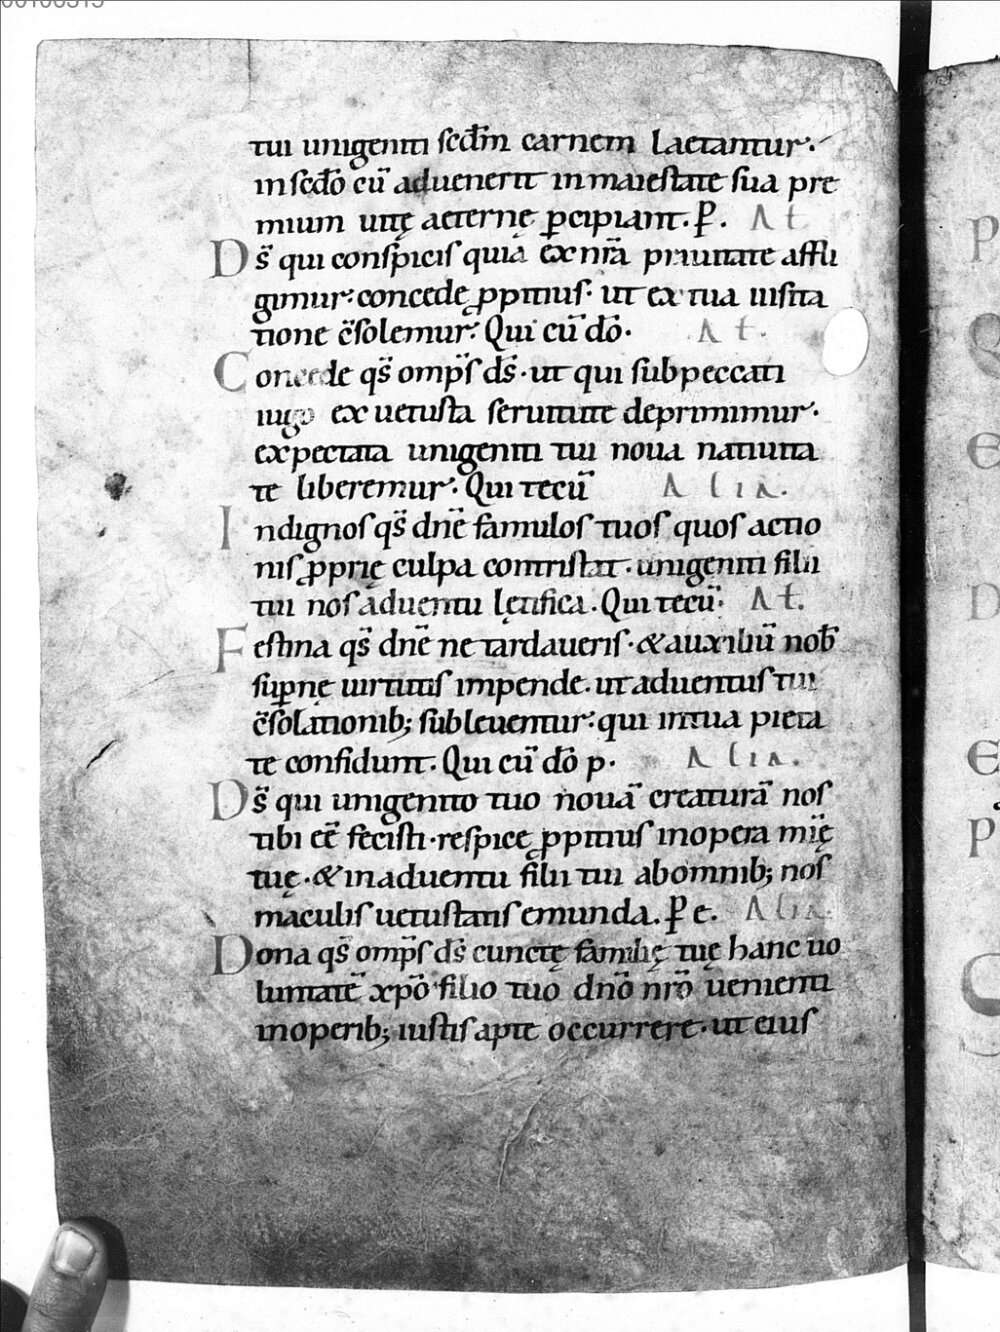 tui unigeniti scd̄m carnem laetantur.
in scd̄o cū aduenerit in maiestate sua pre
mium uitę aeternę ꝑcipiant. P̄. At
Ds̄ qui conspicis quia ex nr̄a prauitate affli
gimur. concede ꝓpitius. ut ex tua uisita
tione c̄solemur. Qui cū dō. At.
Concede qs̄ omp̄s ds̄. ut qui sub peccati
iugo ex uetusta seruitute deprimimur.
expectata unigeniti tui noua natiuita
te liberemur. Qui tecū Alia.
Indignos qs̄ dn̄e famulos tuos quos actio
nis ꝓprię culpa contristat. unigeniti filii
tui nos aduentu lętifica. Qui tecū. At.
Festina qs̄ dn̄e ne tardaueris. & auxiliū nob̄
suꝑnę uirtutis impende. ut aduentus tui
c̄solationib; subleuentur. qui in tua pieta
te confidunt. Qui cū dō p. Alia.
Ds̄ qui unigenito tuo nouā creaturā nos
tibi eē fecisti. respice ꝓpitius in opera mīę
tuę. & in aduentu filii tui ab omnib; nos
maculis uetustatis emunda. P̄ e. Alia.
Dona qs̄ omp̄s ds̄ cunctę familię tuę hanc uo
luntatē xp̄o filio tuo dn̄o nr̄o uenienti
in operib; iustis apte occurrere. ut eius